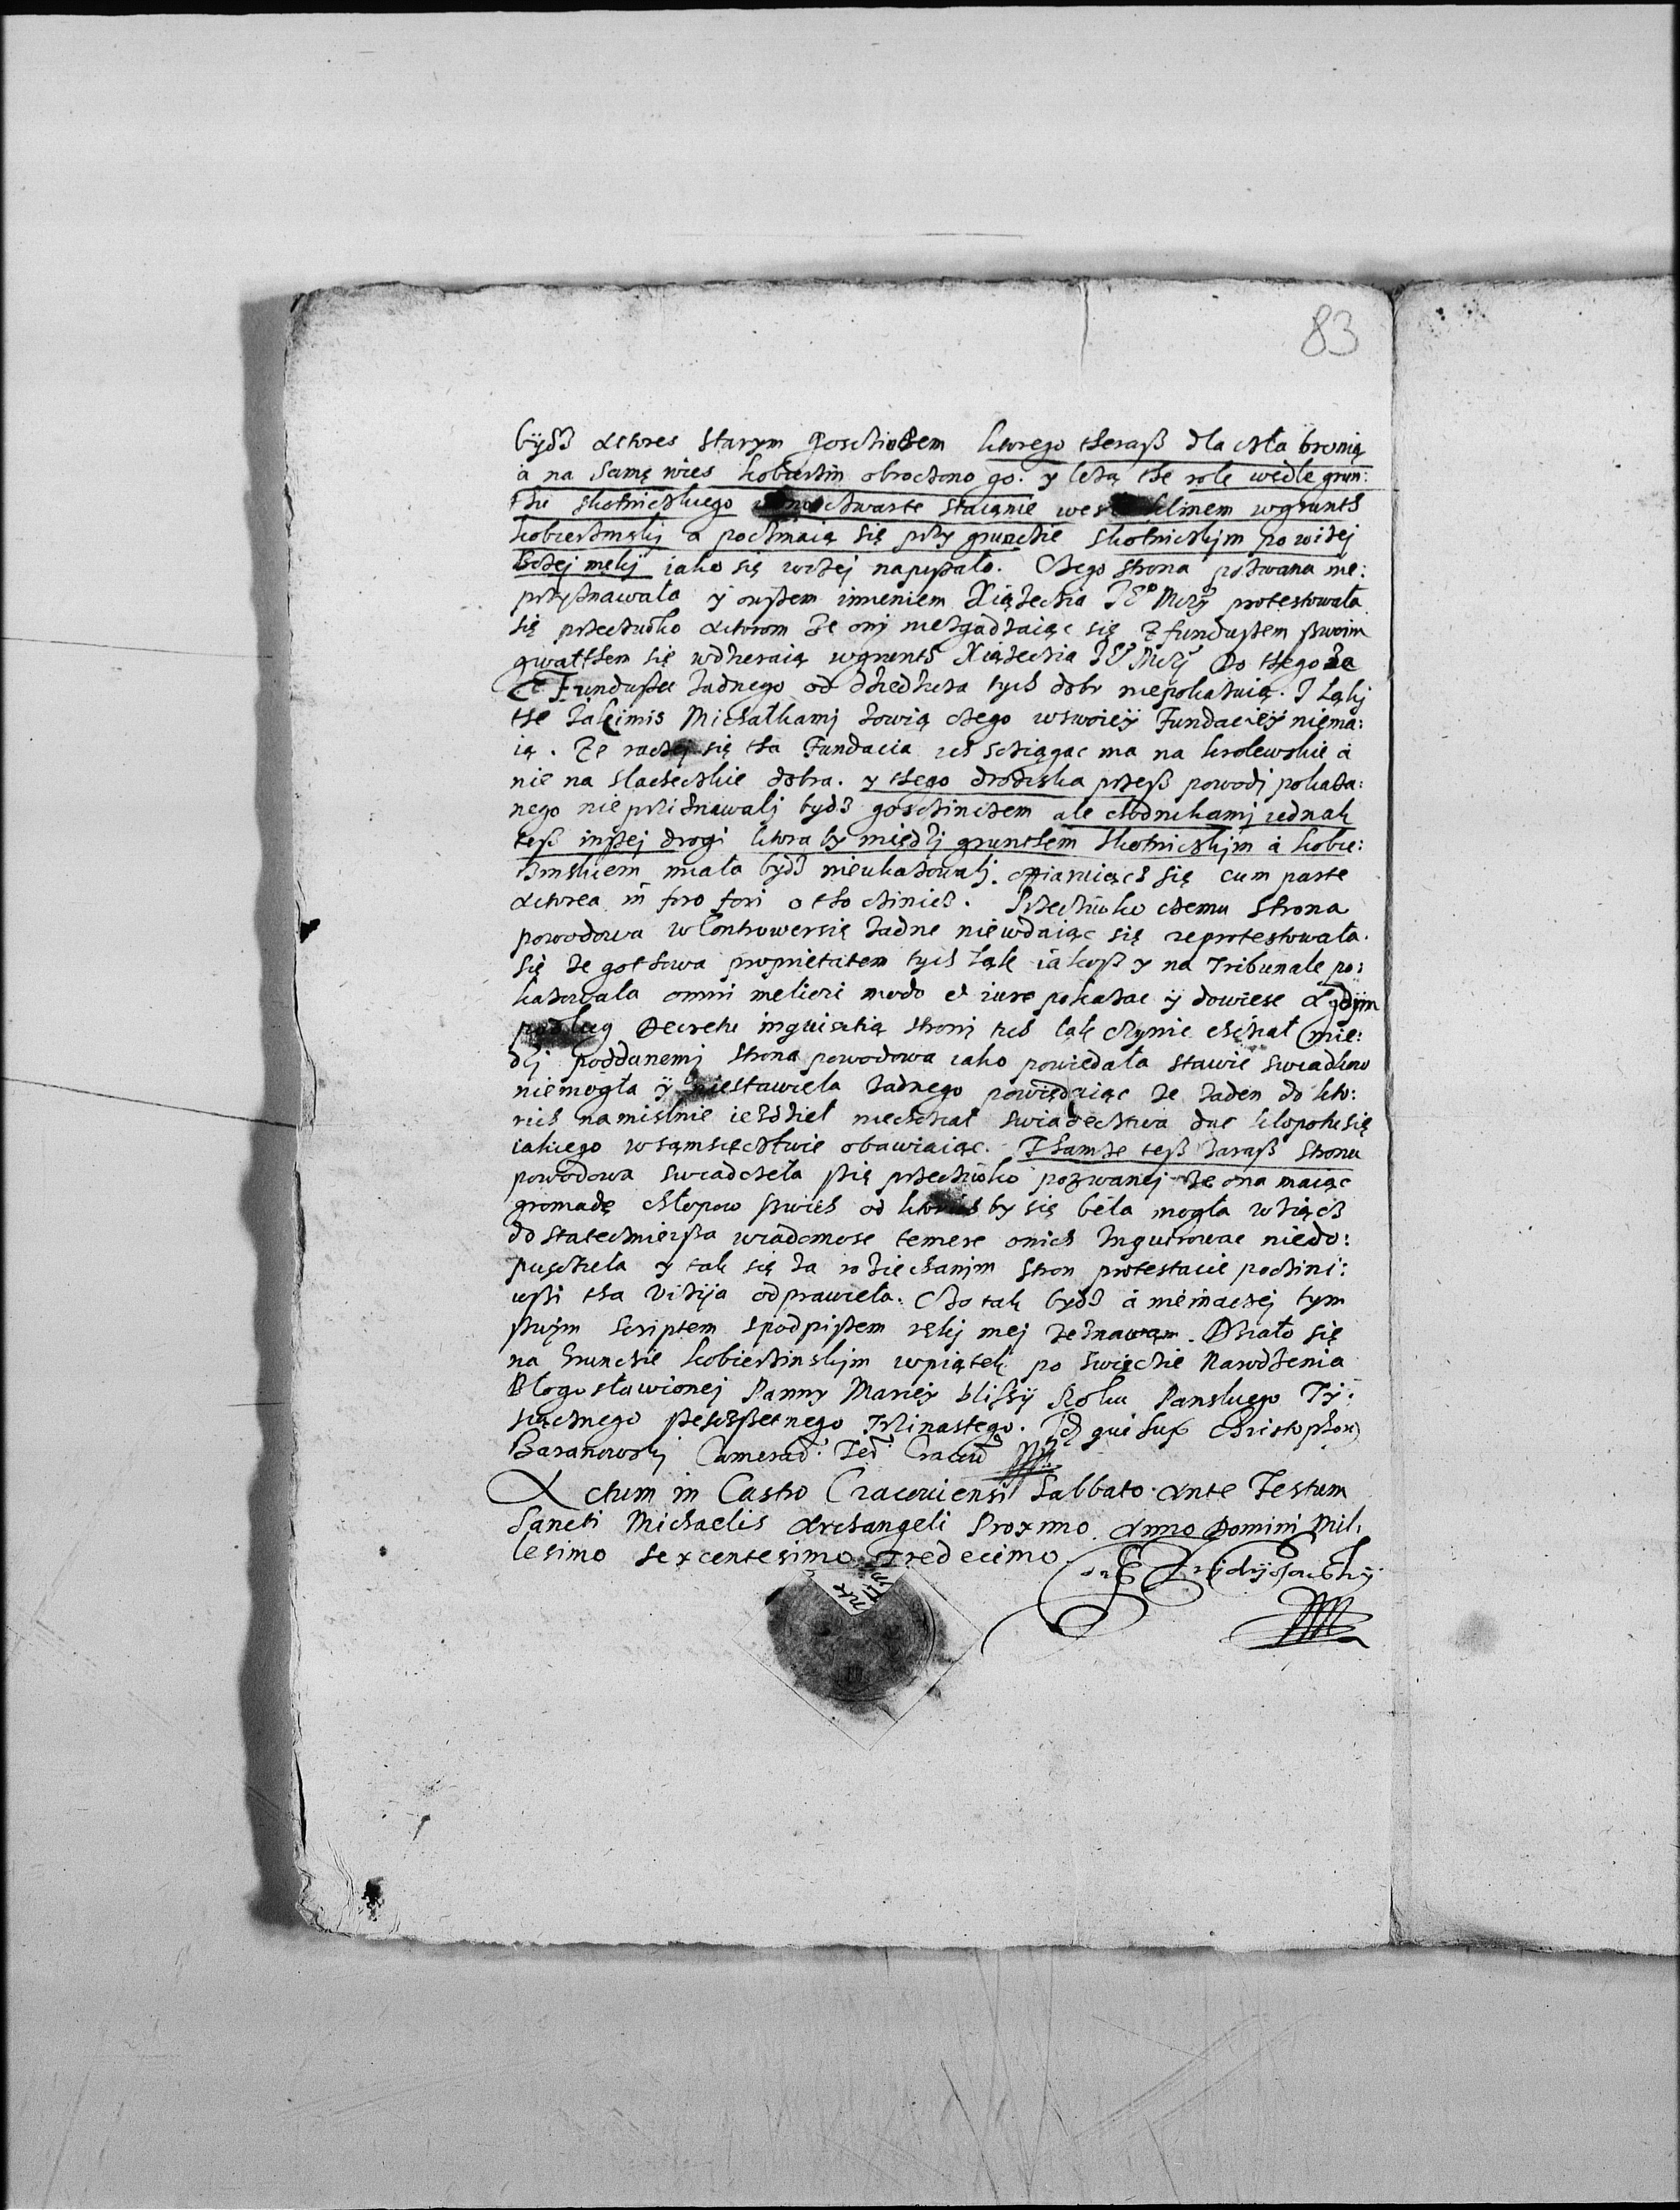 83
bydź Actores starym Gosczincem ktorego theraß dla cżła bronią
à na samę wies kobierżin obroczono go. y leżą the role wedle grun:
thu skotniczkiego czwarte staianie klinem wgrunth
kobierzinskj a poczinaią się przy gruncżie skotniczkim powiżej
Bożej mękj iako się wyżej napyßało. Czego strona pożwana nie:
przyżnawała y owßem imieniem Xiążecżia JE° Mczi protestowała
się przecżiwko Actorom że onj nieżgadżaiąc się ż fundußem ßwoim
gwałthem się wdżieraią wgrunth Xiążecżia JE° Mczi Do thego że
Fundußu żadnego od dżiedżicża tych dobr niepokażuią. I łąkj
the żakimis Michałkamj żowią czego wswoiey Fundaciey niema:
ią. Że raczej się tha Fundacia ich sciągac ma na krolewskie à
nie na slacheczkie dobra. y thego drożiska przeß powodj pokaża:
nego nie priżnawalj bydź gosczinczem ale chodnikamj iednak
teß inßej drogi ktora by międżj grunthem skotniczkim à kobie:
rzinskiem miała bydź nieukażowalj. offiaruiącz się cum parte
Actorea in foro fori o tho cżinicz. Przecżiwko cżemu strona
powodowa w Controwersię żadne niewdaiąc się reprotestowała
się że gotowa proprietatem tych łąk iakoß y na Tribunale po:
każowała omni meliori modo et iure pokażac y dowiesc A gdym
podług Decretu inquisitią stronj tich łąk cżynic chciał mie:
dżj poddanemj strona powodowa iako powiedała stawic swiadkow
niemogła y niestawieła żadnego powiedaiąc że żaden do kto:
rich namislnie ieżdżieł niechciał swiadectwa dac kłopotu się
iakiego wsąmsiecżtwie obawiaiąc. Thamże teß żaraß strona
powodowa swiadcżeła ßię przecżiwko pozwanej że ona maiąc
gromadę chłopow ßwich od ktorich by się beła mogła wżiącz
dostatecżnieißa wiadomosc temere onich Inquirowac niedo:
puscżieła y tak się ża rożiechanim stron protestacie pocżini:
wßi tha Viżija odprawieła. Czo tak bydź à nieinaczej tym
ßwym scriptem spodpißem rękj mej żeżnawam. Dżiało się
na Gruncżie kobierżinskim wpiątek po swięcżie Narodżenia
Błogosławionej Panny Mariey blißy Roku Panskiego Ty:
siącżnego ßescżßetnego Trżinastego. Id qui sup Christophor
Baranowskj Camerar Ter Cracou mp
Actum in Castro Cracouiensi Sabbato Ante Festum
Sancti Michaelis Archangeli Proximo Anno Domini Mil,
lesimo sexcentesimo Tredecimo